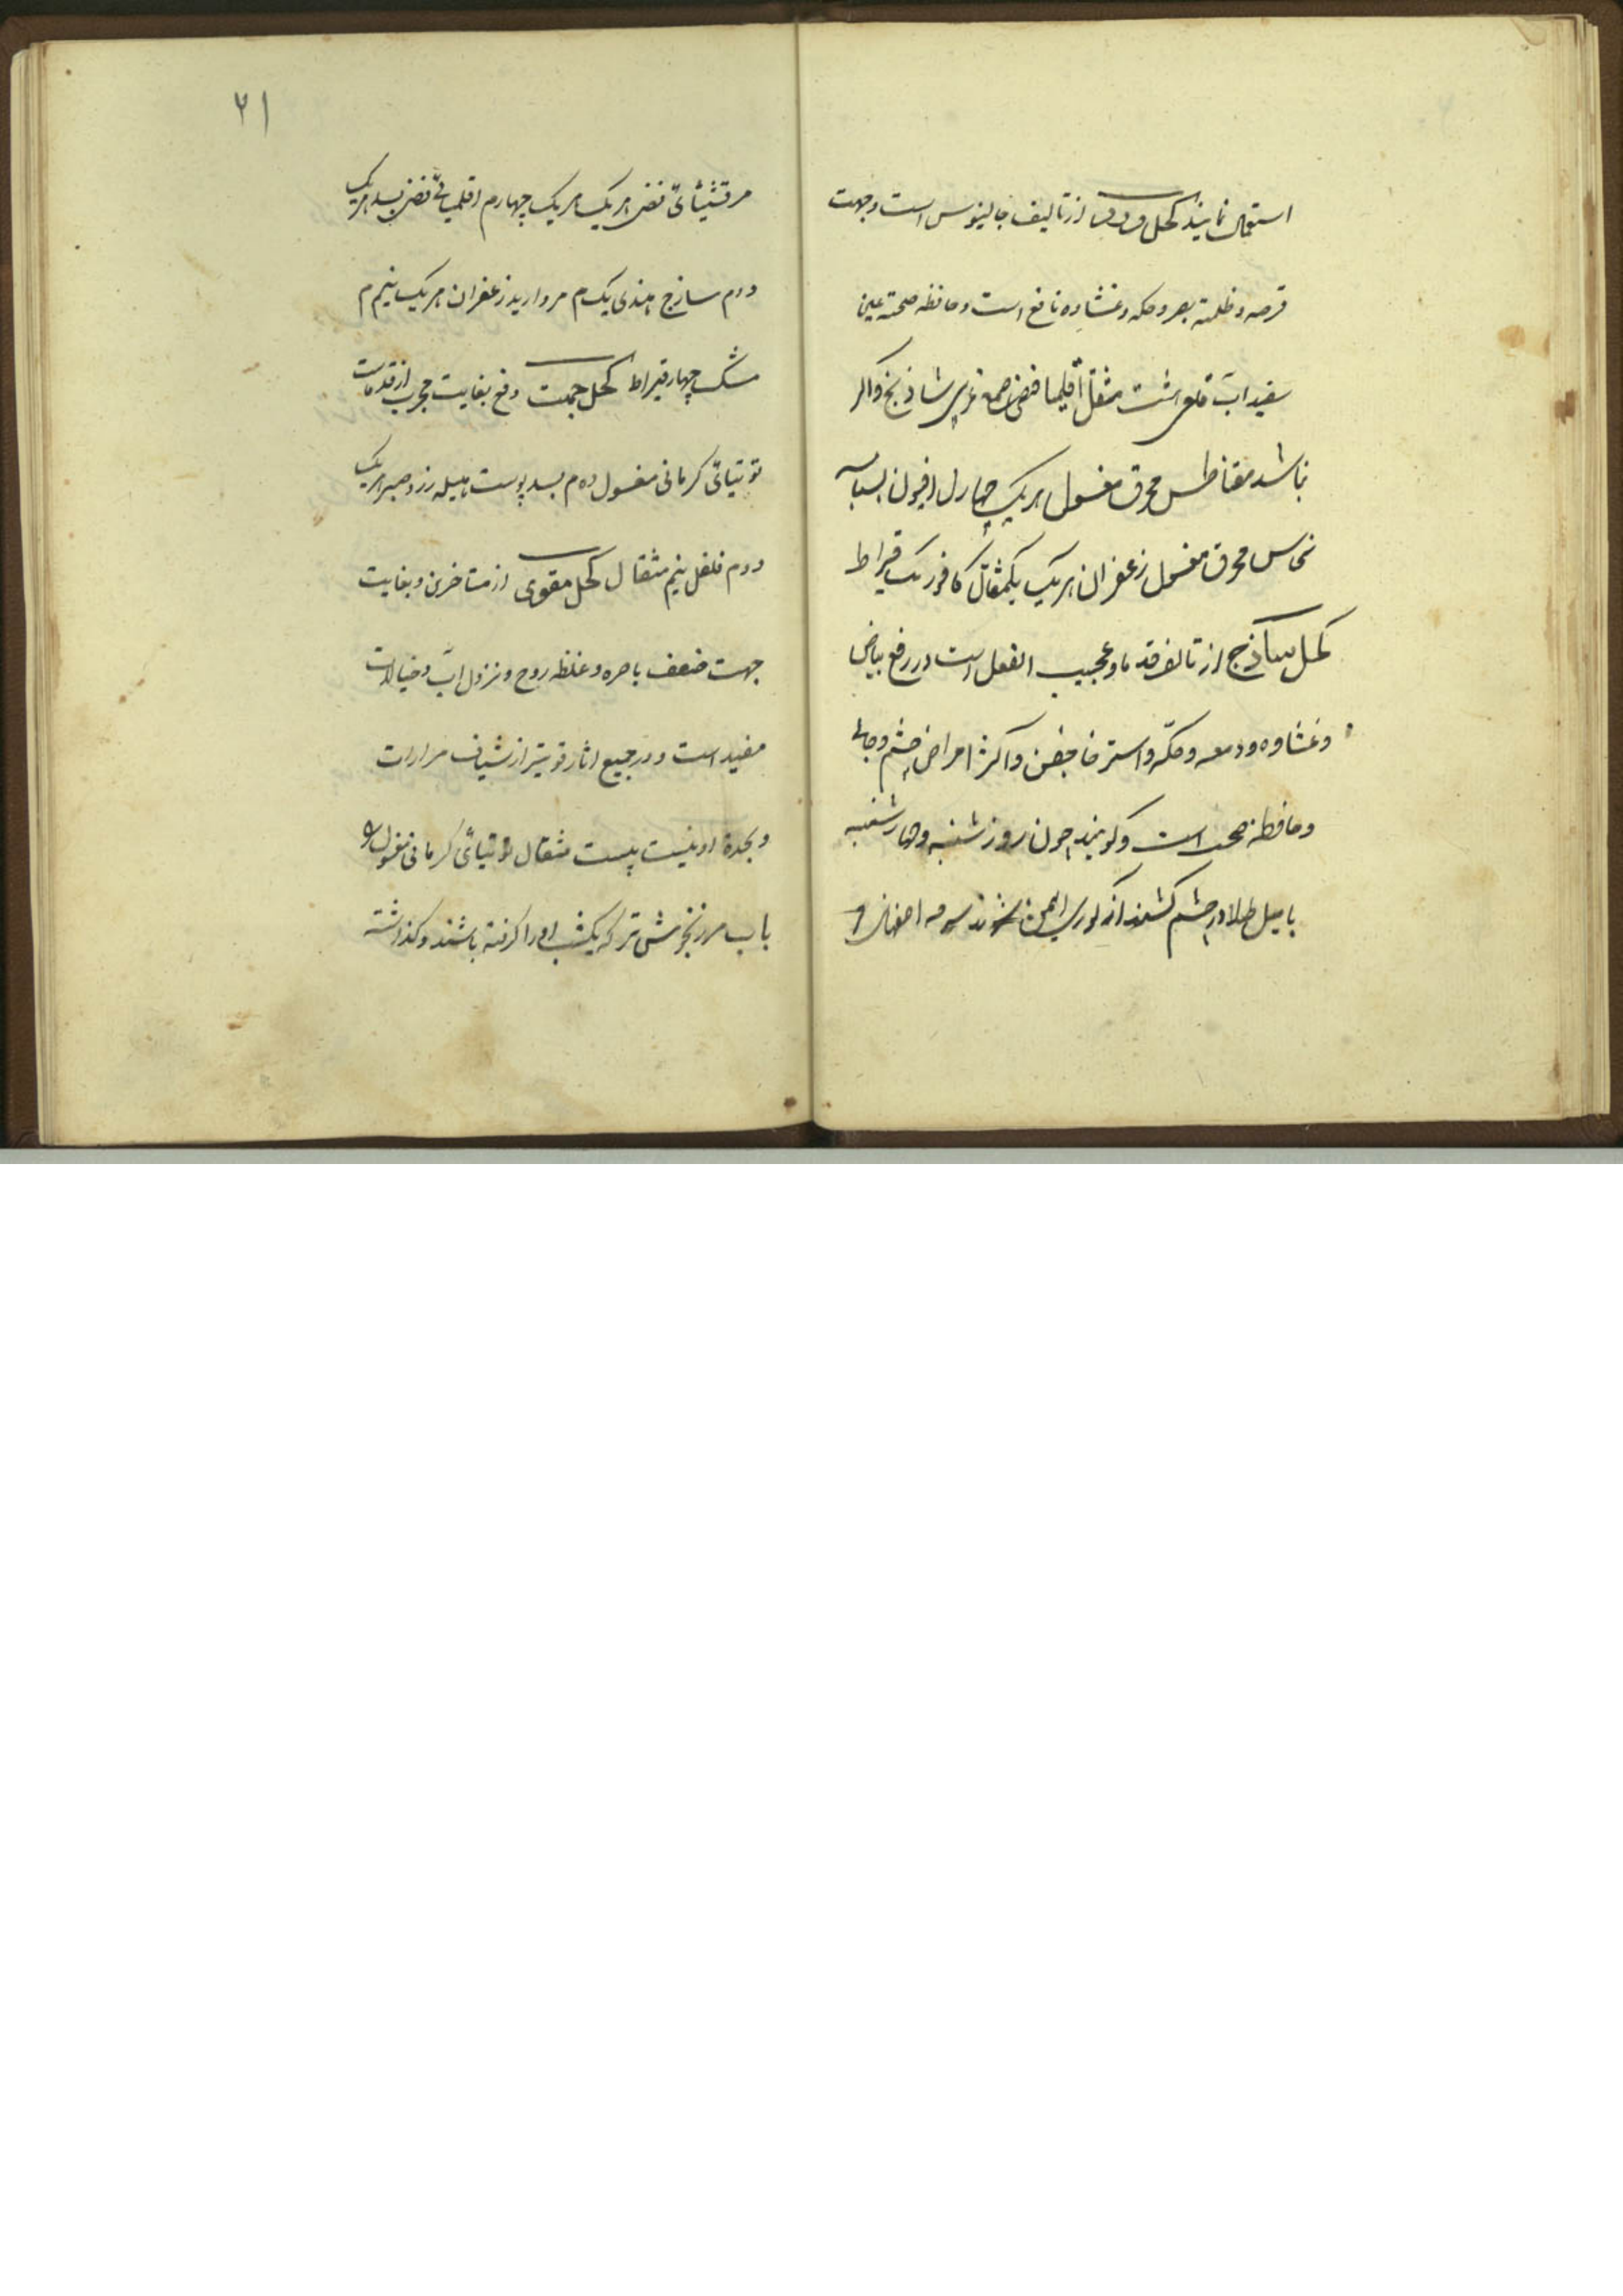 استعمال نمایند کحل وردی از تالیف جالینوس است وجهت
قرحه و ظلمته بصر و حکه و غشاوه نافع است و حافظه صحته عین
سفیداب قلعی هشت مثقال اقلیمیا فضی صمغ عربی شاذنج و اگر
نباشد مقناطیس محرق مغسول هریک چهار افیون
نحاس محرق مغسول زعفران هریک یکمثقال کافور یک قیراط
کحل ساذج از تالیف قدما و عجیب الفعل است در رفع بیاض
و غشاوه و دمعه و حکّه و استرخا جفن و اکثر امراض چشم و جالی
و حافظه صحت است و گویند چون روز شنبه و چهارشنبه
با میل طلا در چشم کشند از کوری ایمن شوند سرمه اصفهانی و
۲۱
مرقشیثائی فضی هریک هریک چهارم اقلمیائی فضی بسد هریک
دوم سازج هندی یک م مروارید زعفران هریک نیم م
مشک چهار قیراط کحل جهت دفع بغایت مجرب از قدماست
توتیائی کرمانی مغسول ده م بسد پوست هلیله زرد صبر هریک
دوم فلفل نیم مثقال کحل مقوی از متاخرین و بغایت
جهت ضعف باصره و غلظه روح و نزول آب و خیالات
مفید است و در جمیع اثار قویتر از شیاف مرارات
و بحدة او نیست بیست مثقال توتیائی کرمانی مغسول
باب مرزنجوش تر که یکشب او را کرفته باشند و کذاشته